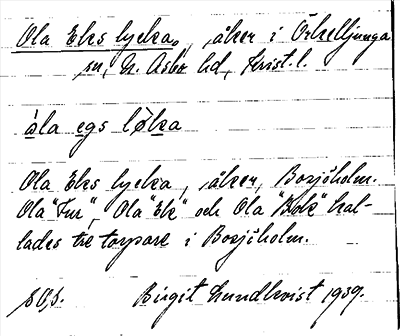 Ola Eks lycka, åker i Örkelljunga
sn, N. Åsbo hd, Krist. l.
ola egs løka
Ola Eks lycka, åker, Bosjöholm.
Ola "Fur", Ola "Ek" och Ola "Bok" kal-
lades tre torpare i Bosjöholm.
Birgit Lundkvist 1939.